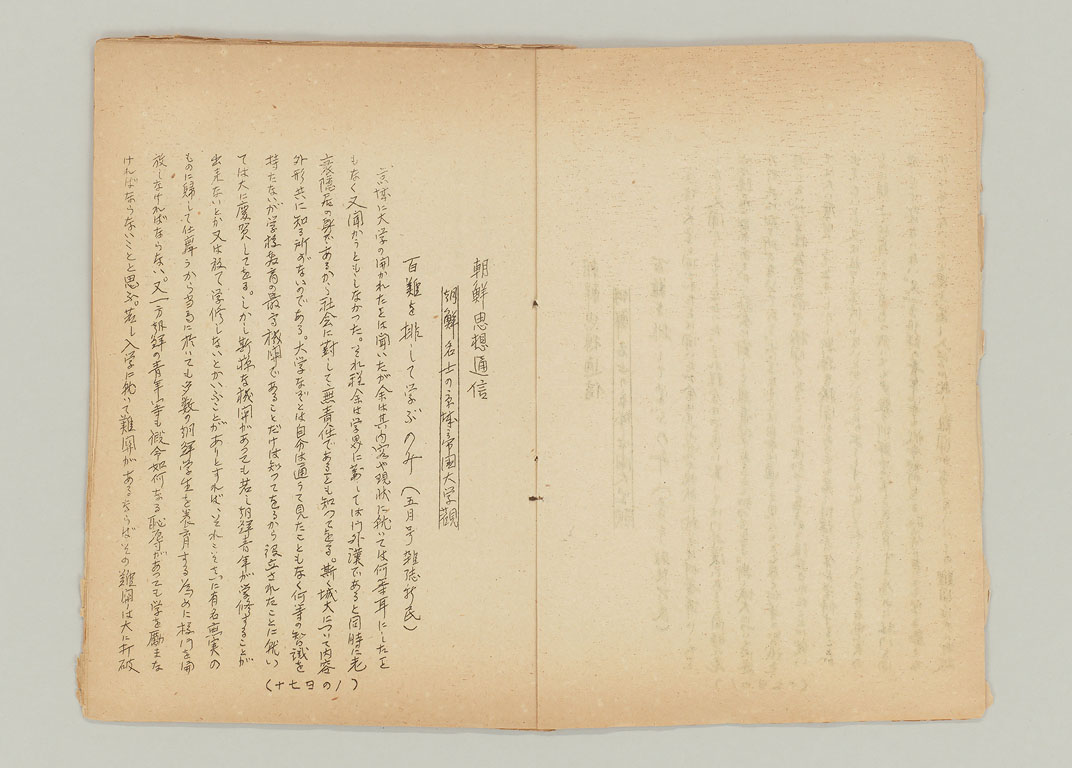 朝鮮思想通信
朝鮮名士の京城帝国大学観
百難を排して学ぶのみ(五月号雑誌新民)
京城に大学の開かれたとは聞いたが余は其内容や現状に就いては何等耳にしたこと
もなく又聞かうともしなかつた。それ程余は学界に対しては門外漢であると同時に老
衰隠居の身であるから社会に対して無責任であることも知つてをる。斯く城大について内容
外形共に知る所がないのである。大学なぞとは自分は通うて見たこともなく何等の智識を
持たないが学校教育の最高機関であることだけは知つてをるから設立されたことに就い
ては大に慶賀してをる。しかし斯様な機関があつても若し朝鮮青年が学修することが
出来ないとか又は敢て学修しないとかいふことがありとすれば、それこそ有名無実の
ものに帰して仕舞うから当局に於いても多数の朝鮮学生を養育する為めに校門を開
放しなければならない。又一方朝鮮の青年等も仮令如何なる恥辱があつても学を励まな
ければならないことと思ふ。若し入学に就いて難関があるならばその難関は大に打破
(十七日の1)